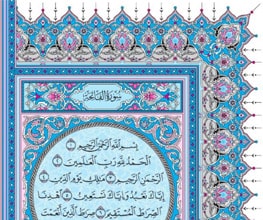 سُورَةُ الفَاتِحَةِ
بِسْمِ اللَّهِ الرَّحْمَٰنِ الرَّحِيمِ ۝١
الْحَمْدُ لِلَّهِ رَبِّ الْعَالَمِينَ ۝٢
الرَّحْمَٰنِ الرَّحِيمِ ۝٣ مَالِكِ يَوْمِ الدِّينِ ۝٤
إِيَّاكَ نَعْبُدُ وَإِيَّاكَ نَسْتَعِينُ ۝٥ اهْدِنَا
الصِّرَاطَ الْمُسْتَقِيمَ ۝٦ صِرَاطَ الَّذِينَ أَنْعَمْتَ